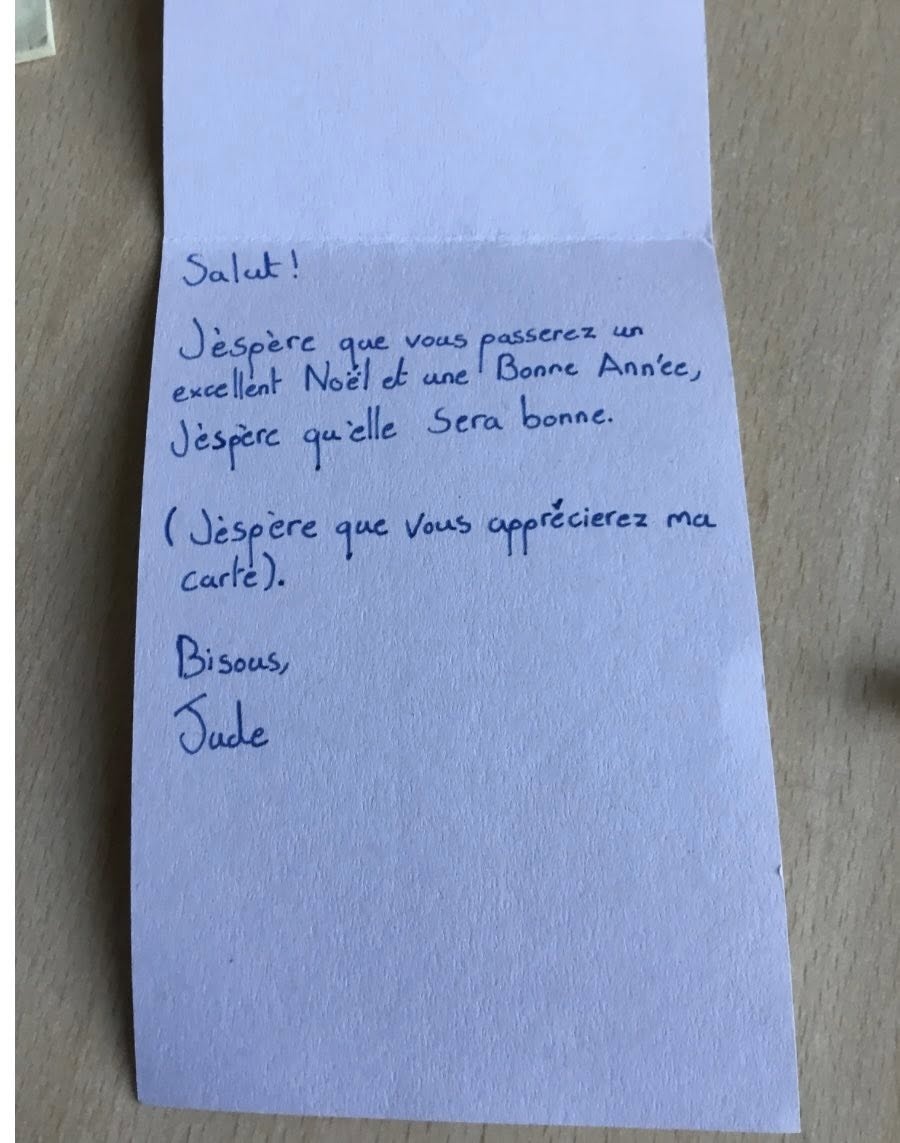 Salut!
Jèspère que vous passerez un
excellent Noël et une Bonne Année,
Jèspère qu'elle Sera bonne.
(Jèspère que Vous apprécierez ma
carte).
Bisous,
Jude